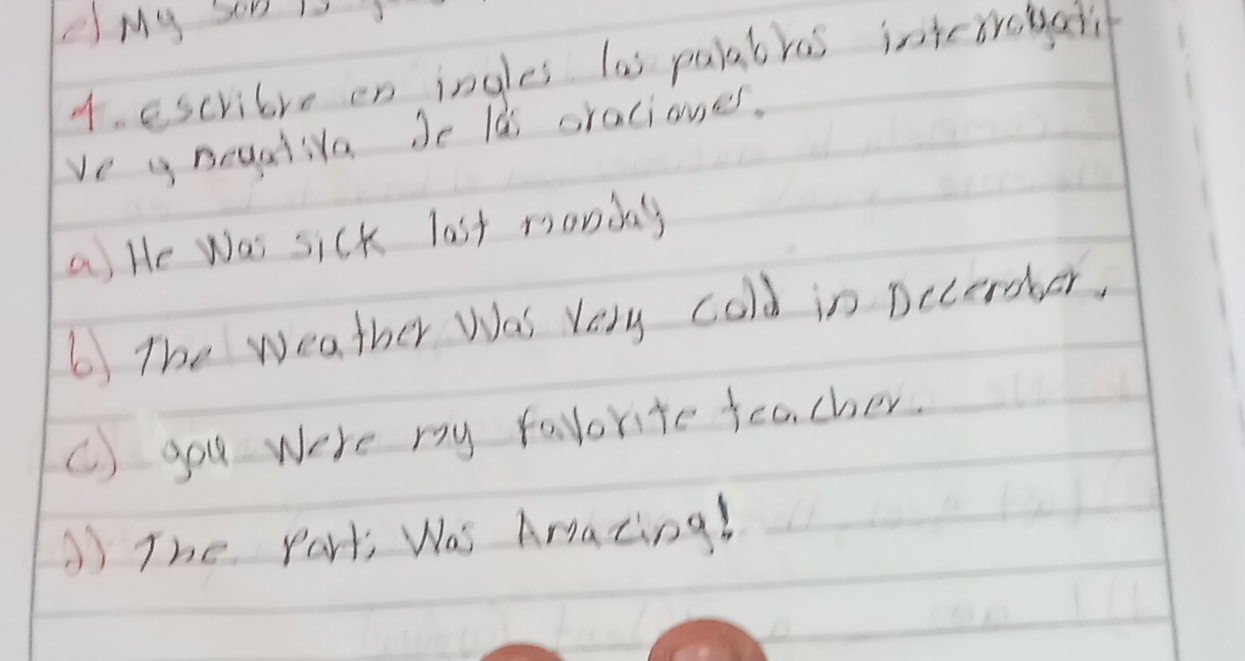 c) My son is
4. escribre en ingles las palabras interrogati-
ve y negativa de las oraciones.
a) He Was sick last monday
b) The Weather Was Very cold in December.
c) you Were my favorite teacher.
d) The Party Was Amazing!